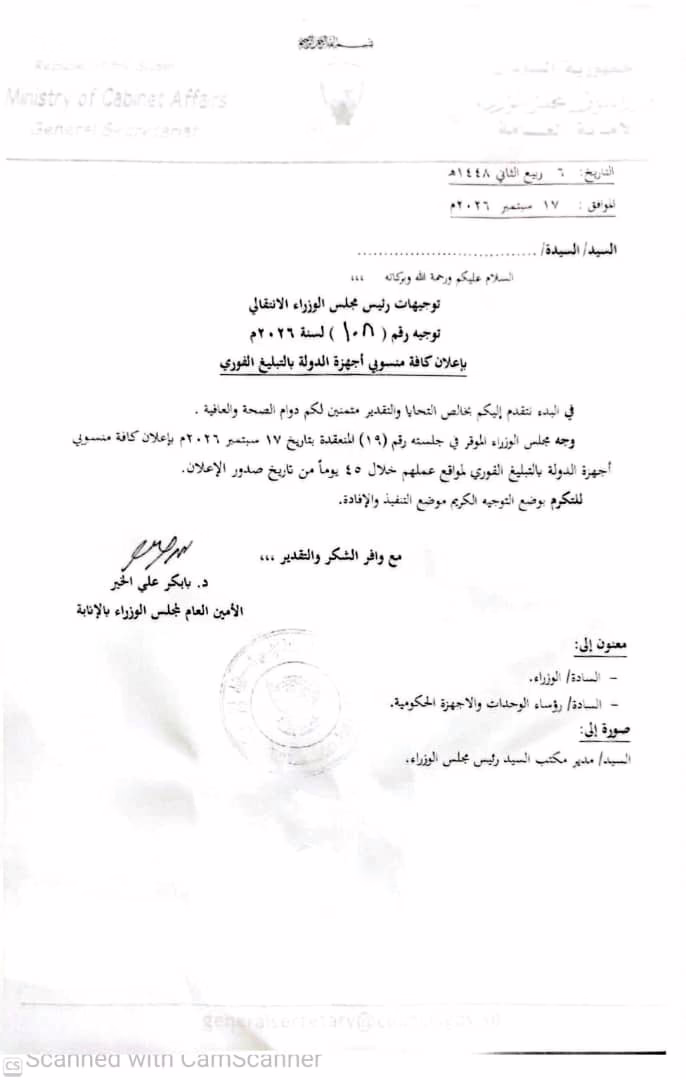 بسم الله الرحمن الرحيم
Ministry of Cabinet Affairs
General Secretariat
التاريخ: ٦ ربيع الثاني ١٤٤٨هـ
الموافق: ١٧ سبتمبر ٢٠٢٦م
السيد/ السيدة/ ................................
السلام عليكم ورحمة الله وبركاته ،،،
توجيهات رئيس مجلس الوزراء الانتقالي
توجيه رقم ( ١٠٨ ) لسنة ٢٠٢٦م
بإعلان كافة منسوبي أجهزة الدولة بالتبليغ الفوري
في البدء نتقدم إليكم بخالص التحايا والتقدير متمنين لكم دوام الصحة والعافية .
وجه مجلس الوزراء الموقر في جلسته رقم (١٩) المنعقدة بتاريخ ١٧ سبتمبر ٢٠٢٦م بإعلان كافة منسوبي
أجهزة الدولة بالتبليغ الفوري لمواقع عملهم خلال ٤٥ يوماً من تاريخ صدور الإعلان.
للتكرم بوضع التوجيه الكريم موضع التنفيذ والإفادة.
مع وافر الشكر والتقدير ،،،
د. بابكر علي الخير
الأمين العام لمجلس الوزراء بالإنابة
معنون إلى:
- السادة/ الوزراء.
- السادة/ رؤساء الوحدات والاجهزة الحكومية.
صورة إلى:
السيد/ مدير مكتب السيد رئيس مجلس الوزراء.
CS Scanned with CamScanner